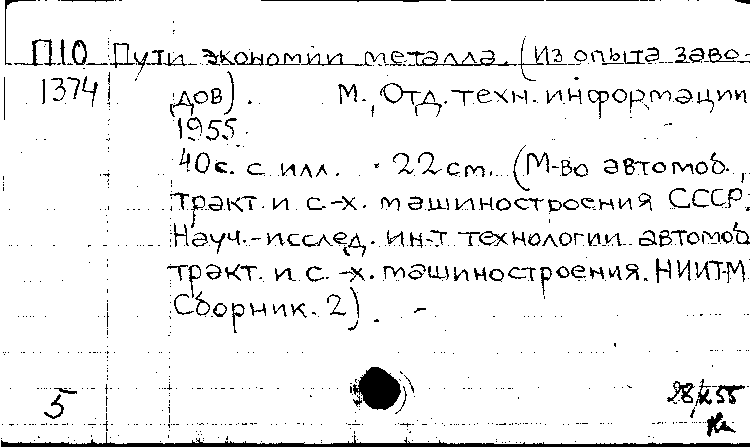 П10 Пути экономии металла. (Из опыта заво-
1374 дов). М., Отд. техн. информации
1955.
40с. с илл. 22 см. (М-во автомоб.,
тракт. и с.-х. машиностроения СССР.
Науч.-исслед. ин-т технологии автомоб
тракт. и с.-х. машиностроения. НИИТМ
Сборник. 2). -
5 28/X 55